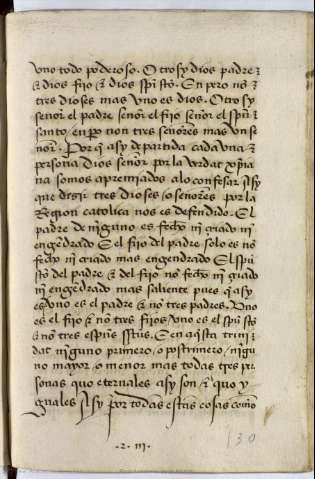 vno todo poderoso. Otrosy dios padre ⁊
⁊ dios fijo ⁊ dios spū stō. En pero nō ⁊
tres dioses mas vno es dios. Otrosy
señor el padre señor el fijo señor el spū ⁊
santo en pō non tres señores mas vn se
ñor. Por q̄ asy departida cada vna ⁊
persona dios señor por la verdat xp̄ia
na somos apremiados a lo confesar asy
que dezir tres dioses / o señores por la
Region catolica nos es defendido. El
padre de niguno es fecho nī criado nī
engēdrado E el fijo del padre solo es nō
fecho nī criado mas engendrado El spū
stō del padre ⁊ del fijo nō fecho nī criado
nī engēdrado mas saliente pues q̄ asy
es vno es el padre ⁊ nō tres padres. Vno
es el fijo ⁊ nō tres fijos / vno es el spū stō
⁊ nō tres espūs sātus. E en aq̄sta trini
dat niguno primero / o postrimero / nigu
no mayor / o menor mas todas tres per
sonas quo eternales asy son ⁊ quo y
guales asy por todas estas cosas como
.2. III.
130